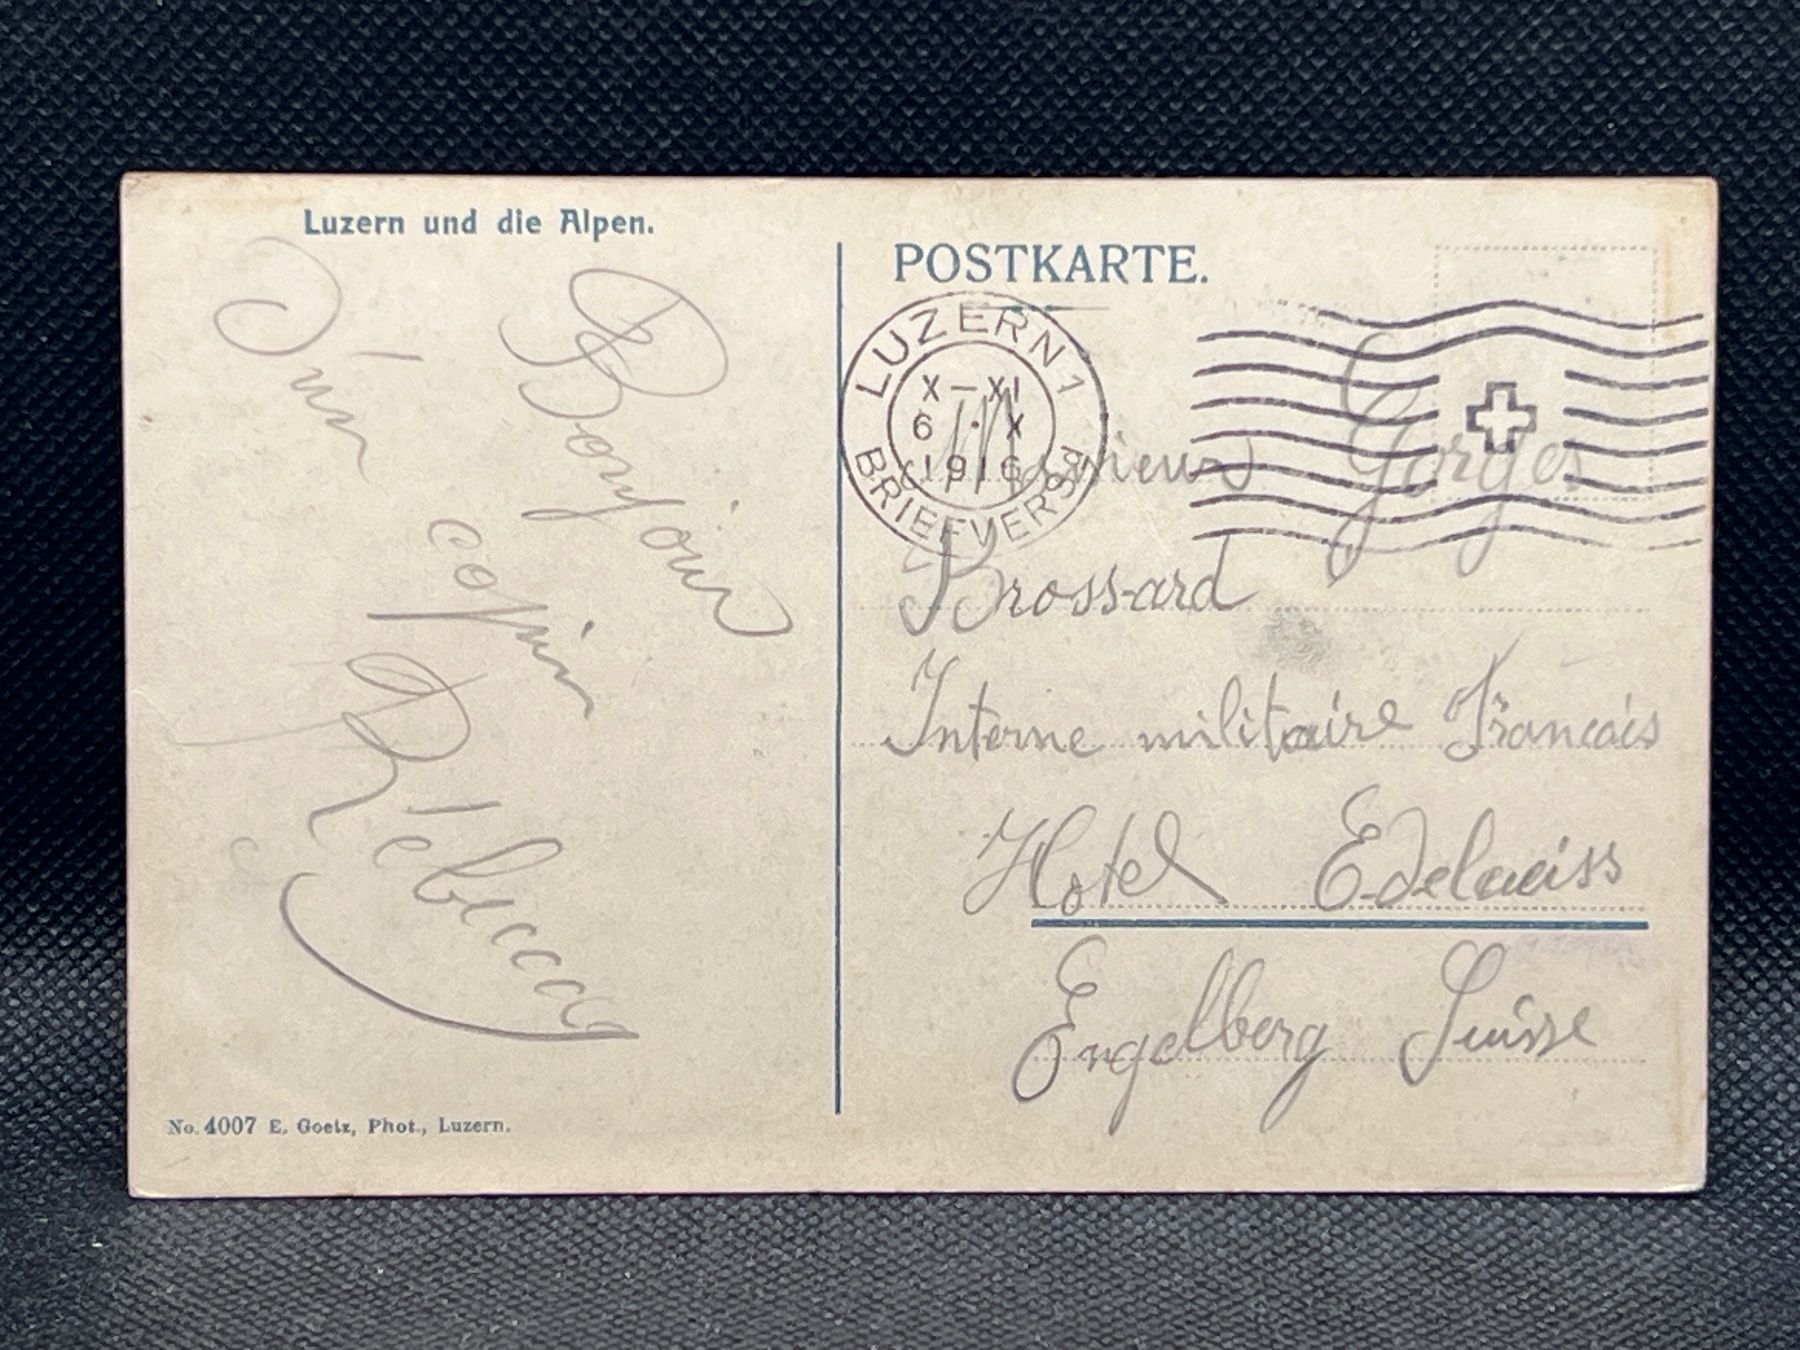 Luzern und die Alpen.
Bonjour
d'un
copin
Rébecca
No. 4007 E. Goetz, Phot., Luzern.
POSTKARTE.
LUZERN 1
X-XI
6 · X
1916
BRIEFVERSD
Monsieur Gorges
Brossard
Interne militaire Francais
Hotel Edelweiss
Engelberg Suisse